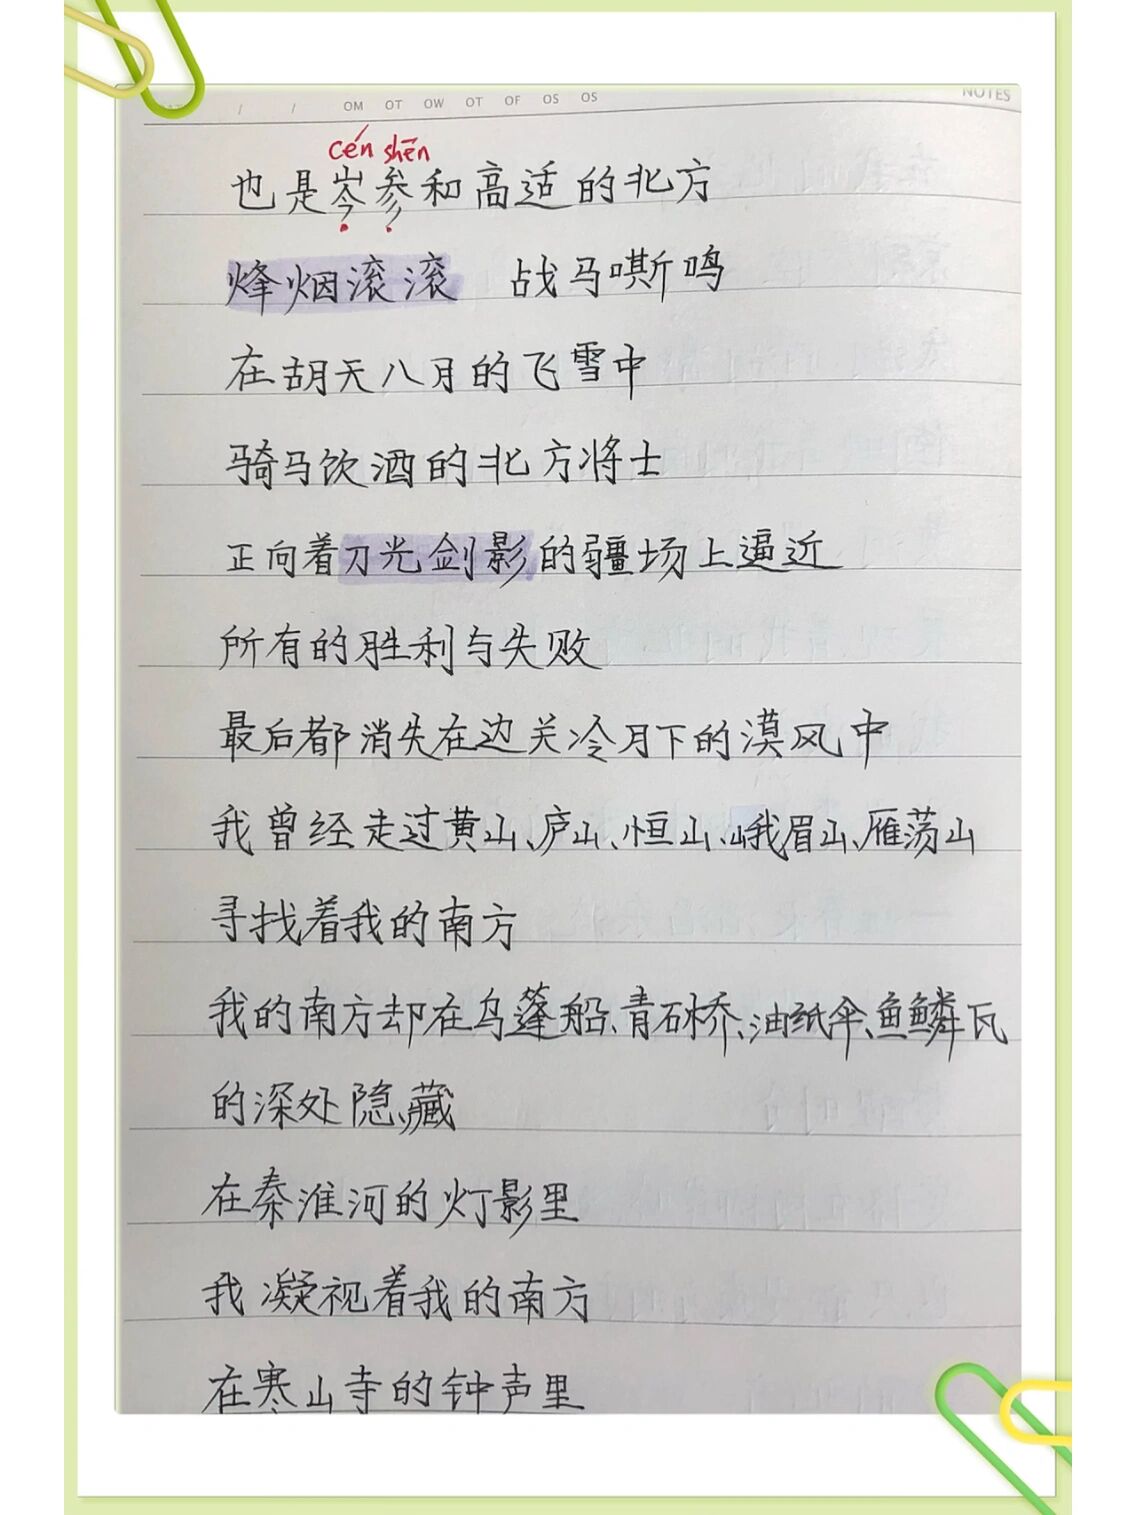 / / OM OT OW OT OF OS OS NOTES
cén shēn
也是岑参和高适的北方
烽烟滚滚 战马嘶鸣
在胡天八月的飞雪中
骑马饮酒的北方将士
正向着刀光剑影的疆场上逼近
所有的胜利与失败
最后都消失在边关冷月下的漠风中
我曾经走过黄山、庐山、恒山、峨眉山、雁荡山
寻找着我的南方
我的南方却在乌篷船、青石桥、油纸伞、鱼鳞瓦
的深处隐藏
在秦淮河的灯影里
我凝视着我的南方
在寒山寺的钟声里